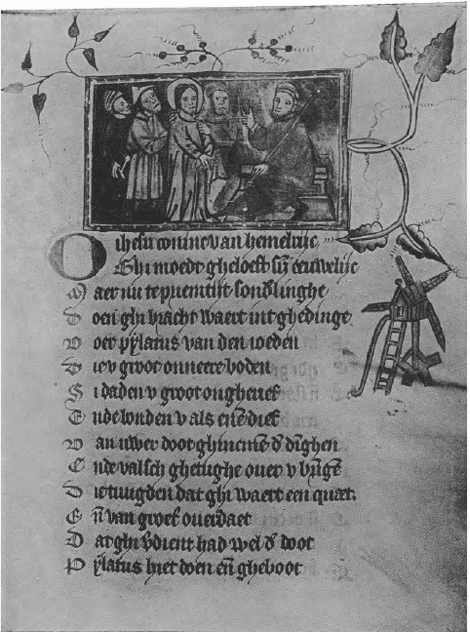 O ihesu coninc van hemelrijc
Ghi moedt gheloeft sijn eeuwelijc
Maer nu te priemtijt sondlinghe
Doen ghi bracht waert int ghedinge
Voer pylatus van den ioeden
Die v groot onneere boden
Si daden v groot ongherief
Ende bonden v als enē dief
Van uwer doot ghincmē d dinghen
Ende valsch ghetughe ouer v bringē
Die tuugden dat ghi waert een quaet.
En̄ van groet ouerdaet
Dat ghi v̄dient had wel d doot
Pylatus hiet doen en̄ gheboot